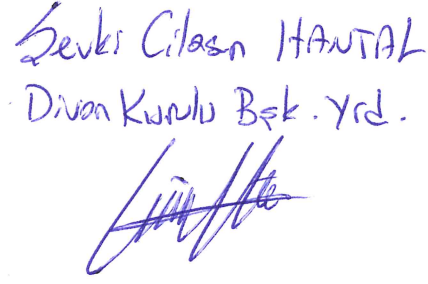 Şevki Cilasn HANTAL
Divan Kurulu Bşk. Yrd.